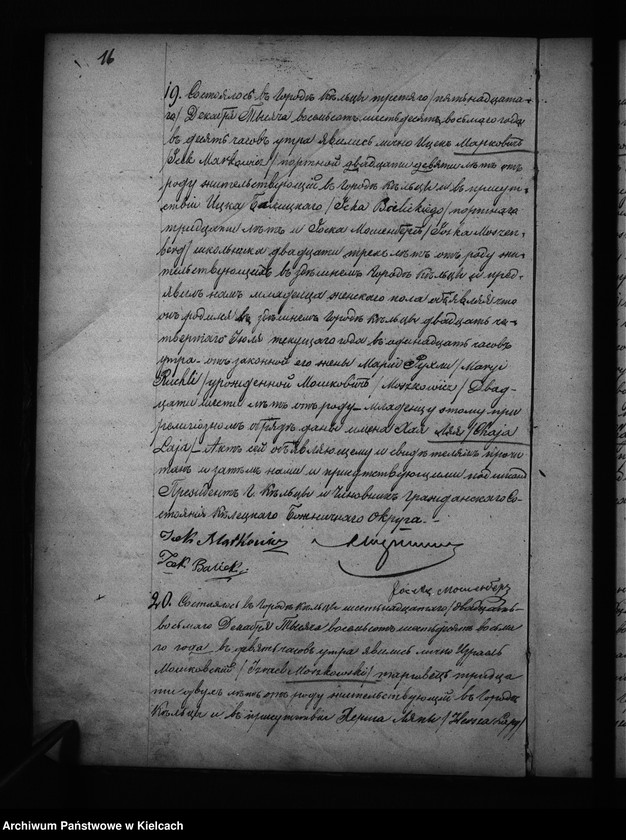 16
19. Состоялось въ Городѣ Кѣльцы третяго/пятьнадцата-
го/ Декабря Тысяча восемьсотъ шестьдесятъ восьмаго года
въ десять часовъ утра явились лично Ицекъ Марковичъ
/Icek Markowicz/ портной двадцати девяти лѣтъ отъ
роду жительствующій въ Городѣ Кѣльцы и въ присут-
ствіи Ицка Балицкаго /Icka Balickiego/ портнаго
тридцати лѣтъ и Йоска Мошенберга /Joska Moszen-
berg/ школьника двадцати трехъ лѣтъ отъ роду жи-
тельствующихъ въ здѣшнемъ Городѣ Кѣльцы и пред-
явилъ намъ младенца женскаго пола объявляя что
онъ родился въ здѣшнемъ Городѣ Кѣльцы двадцать че-
твертаго Іюля текущаго года въ одинадцать часовъ
утра отъ законной его жены Маріи Рухли /Maryi
Ruchli/ урожденной Мошковичъ /Moszkowicz/ двад-
цати шести лѣтъ отъ роду. Младенцу этому при
религіозномъ обрядѣ даны имена Хая Лая /Chaja
Laja/. Актъ сей объявляющему и свидѣтелямъ прочи
танъ и затѣмъ нами и присутствующими подписанъ
Президентъ Г. Кѣльцы и Чиновникъ Гражданскаго Со-
стоянія Кѣлецкаго Божничнаго Округа.
Icek Markowicz
Icek Balicki
Йосекъ Мошенбергъ
20. Состоялось въ Городѣ Кѣльцы шестьнадцатаго/двадцать-
восьмаго Декабря Тысяча восемьсотъ шестьдесятъ восьма
го года въ девять часовъ утра явились лично Израель
Мошковскій /Izrael Moszkowski/ торговецъ тридца
ти двухъ лѣтъ отъ роду жительствующій въ Городѣ
Кѣльцы и въ присутствіи Херша
Archiwum Państwowe w Kielcach